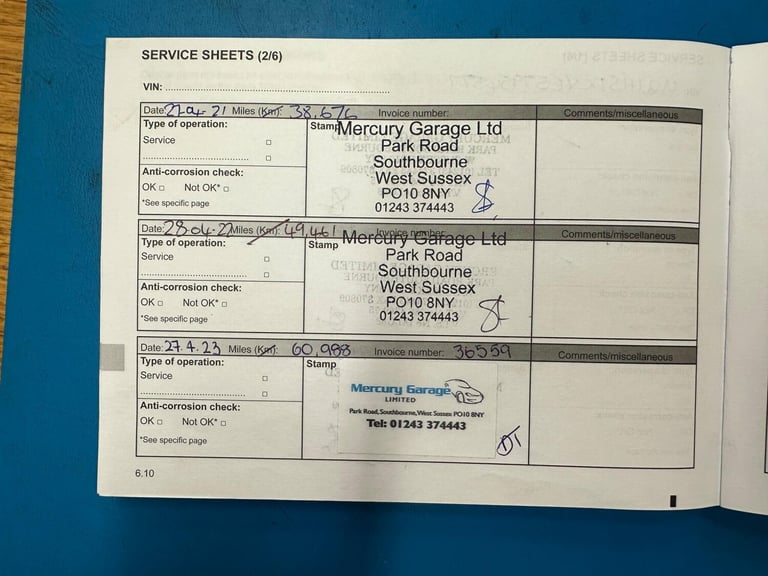 SERVICE SHEETS (2/6)
VIN: ........................................................
Date: 27-04-21 Miles (Km): 38,676 Invoice number: Comments/miscellaneous
Type of operation:
Service
Anti-corrosion check:
OK Not OK*
*See specific page
Stamp
Mercury Garage Ltd
Park Road
Southbourne
West Sussex
PO10 8NY
01243 374443
Date: 28-04-22 Miles (Km): 49,461 Invoice number: Comments/miscellaneous
Type of operation:
Service
Anti-corrosion check:
OK Not OK*
*See specific page
Stamp
Mercury Garage Ltd
Park Road
Southbourne
West Sussex
PO10 8NY
01243 374443
Date: 27.4.23 Miles (Km): 60,988 Invoice number: 36559 Comments/miscellaneous
Type of operation:
Service
Anti-corrosion check:
OK Not OK*
*See specific page
Stamp
Mercury Garage
LIMITED
Park Road, Southbourne, West Sussex PO10 8NY
Tel: 01243 374443
6.10